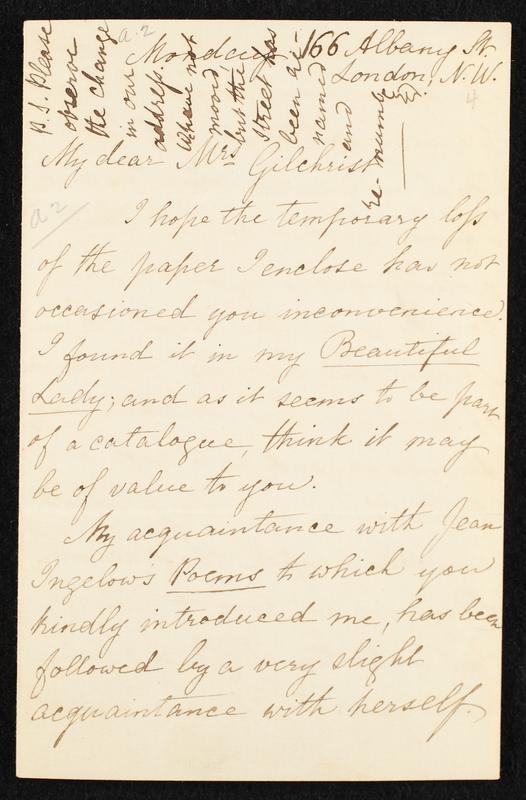 Monday. 166 Albany St.
London, N.W.
My dear Mrs Gilchrist
I hope the temporary loss
of the paper I enclose has not
occasioned you inconvenience.
I found it in my Beautiful
Lady; and as it seems to be part
of a catalogue, think it may
be of value to you.
My acquaintance with Jean
Ingelow's Poems to which you
kindly introduced me, has been
followed by a very slight
acquaintance with herself.
P.S. Please
observe
the change
in our
address.
We have not
moved
but the
street has
been re-
named
and
re-numbered.
a.2
a2
4